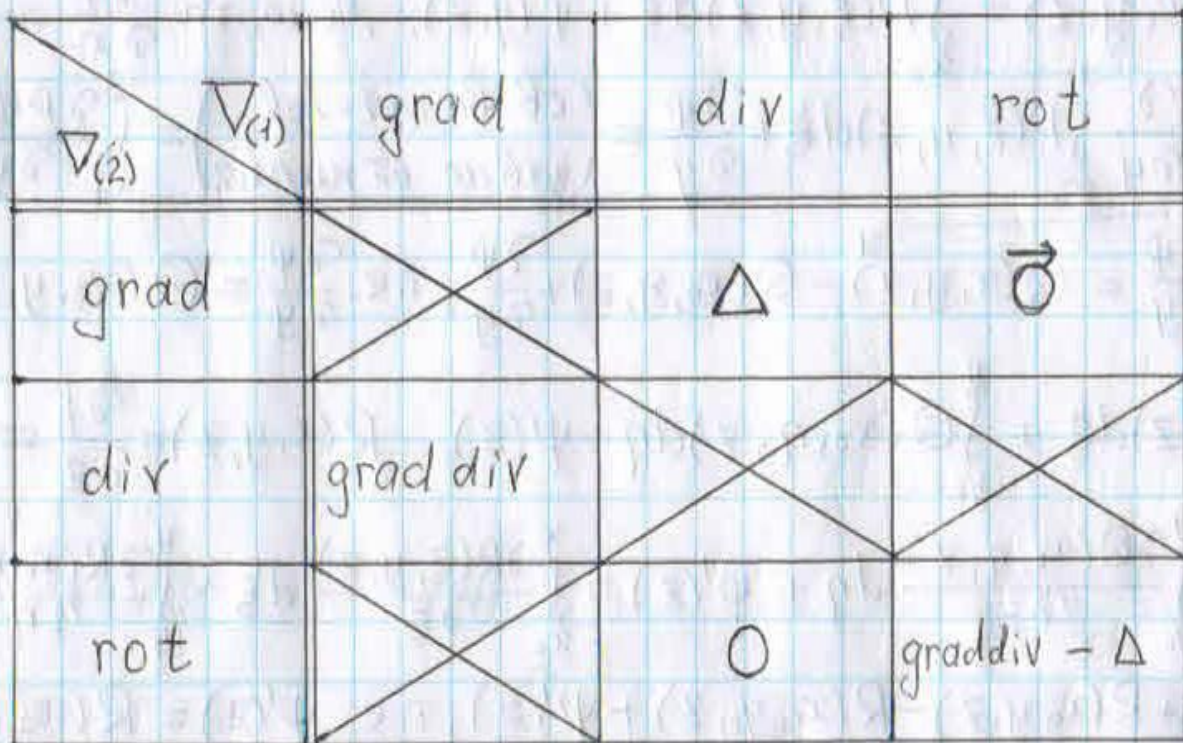 ∇(1) grad div rot
∇(2)
grad Δ 0⃗
div grad div
rot 0 graddiv - Δ